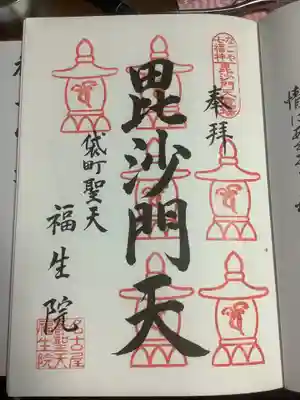 奉拝
毘沙門天
袋町聖天
福生院
なごや
七福神
名古屋
聖天
福生院